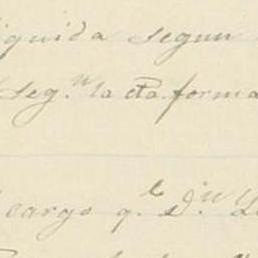 iquida segun
seg.n la dta forma
cargo q.e D.n